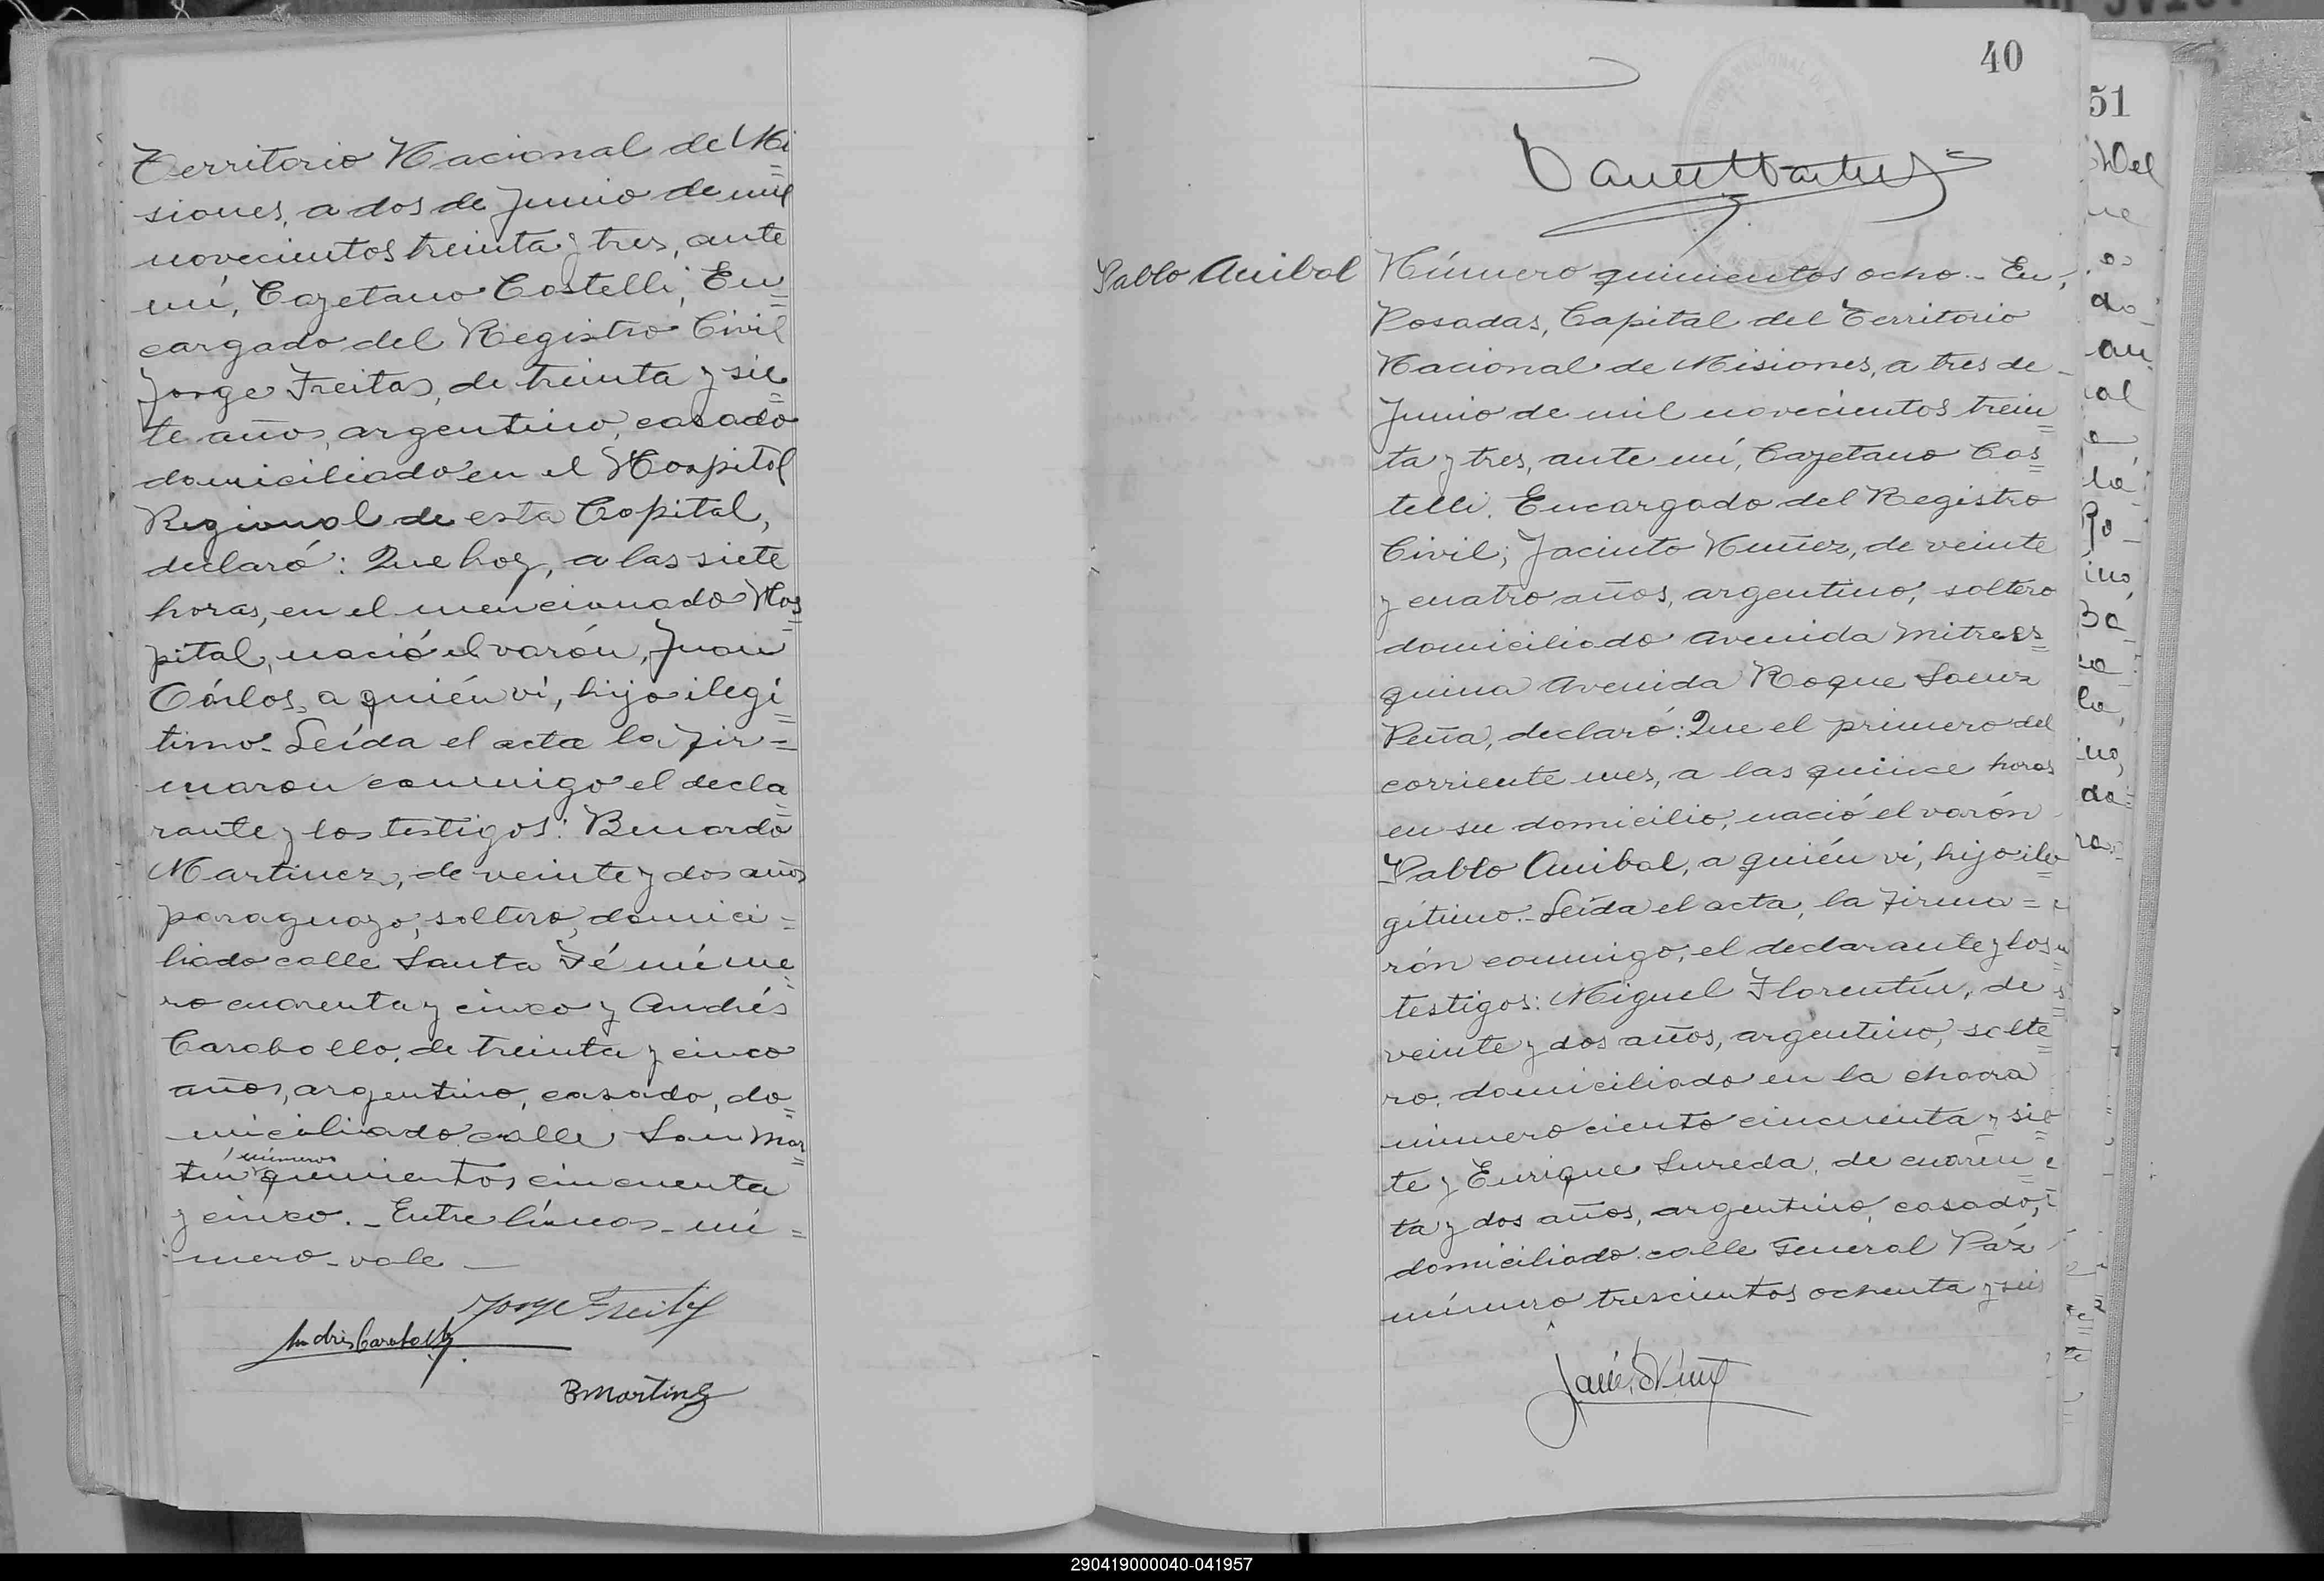 Territorio Nacional de Mi
siones, a dos de Junio de mil
novecientos treinta y tres, ante
mí, Cayetano Costelli, En
cargado del Registro Civil
Jorge Freitas, de treinta y sie
te años, argentino, casado
domiciliado en el Hospital
Regional de esta Capital,
declaró: Que hoy, a las siete
horas, en el mencionado Hos
pital, nació el varón, Juan
Cárlos, a quién ví, hijo ilegí
timo. Leída el acta la fir=
maron conmigo el decla
rante y los testigos: Benardo
Martinez, de veinte y dos años
paraguayo, soltero, domici=
liado calle Santa Fé núme
ro cuarenta y cinco y Andrés
Caraballo, de treinta y cinco
años, argentino, casado, do=
miciliado calle San Mar
número
tín quinientos cincuenta
y cinco. - Entre líneas - nú=
mero - vale
Jorge Freitas
Andres Caraballo
B Martinez
40
Pablo Anibal
Número quinientos ocho - En
Posadas, Capital del Territorio
Nacional de Misiones, a tres de
Junio de mil novecientos trein
ta y tres, ante mí, Cayetano Cos
telli. Encargado del Registro
Civil; Jacinto Nuñez, de veinte
y cuatro años, argentino, soltero
domiciliado Avenida Mitre es
quina Avenida Roque Saenz
Peña, declaró: Que el primero del
corriente mes, a las quince horas
en su domicilio, nació el varón
Pablo Anibal, a quién ví, hijo ile
gítimo. - Leída el acta, la firma=
rón conmigo, el declarante y los
testigos: Miguel Florentín, de
veinte y dos años, argentino, solte
ro, domiciliado en la chacra
número ciento cincuenta y sie
te y Enrique Sureda, de cuaren
ta y dos años, argentino, casado,
domiciliado calle General Páz
número trescientos ochenta y seis
51
290419000040-041957